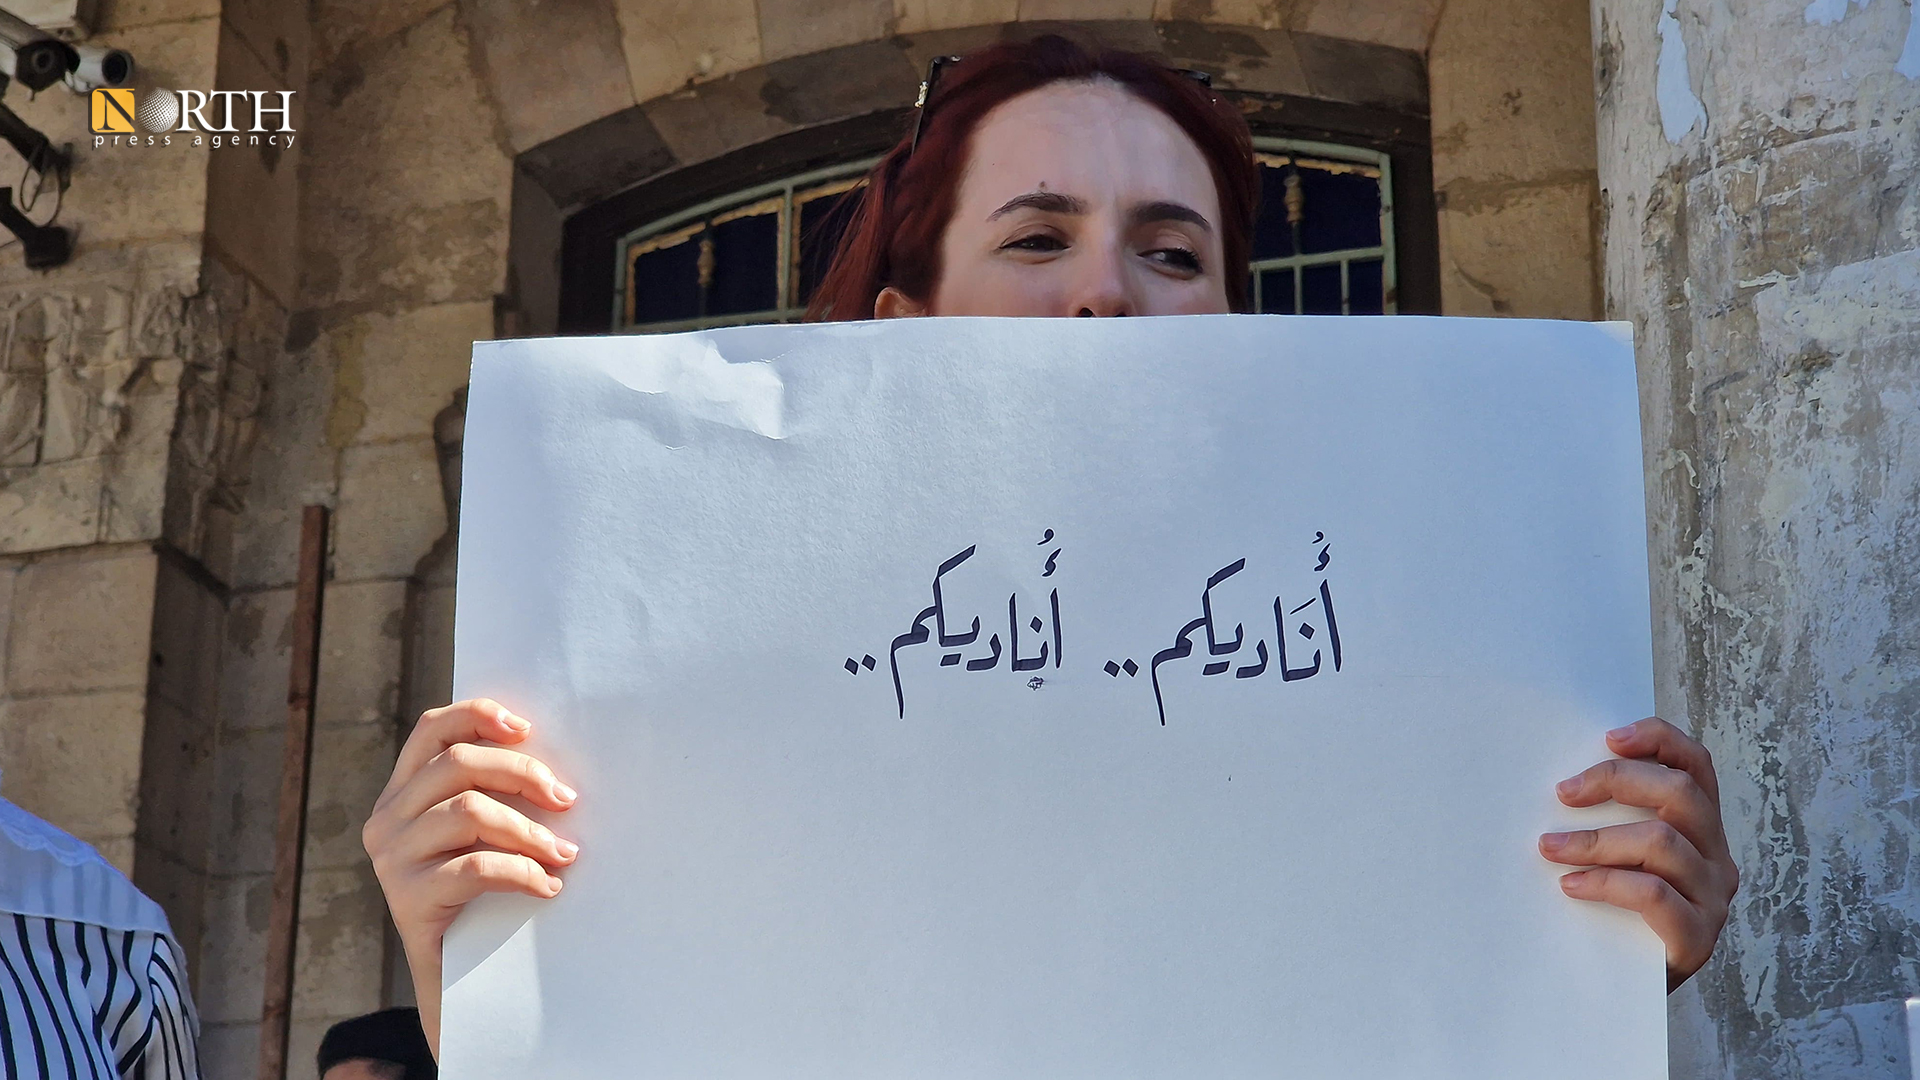 NORTH
press agency
أُنَاديكم.. أُناديكم..